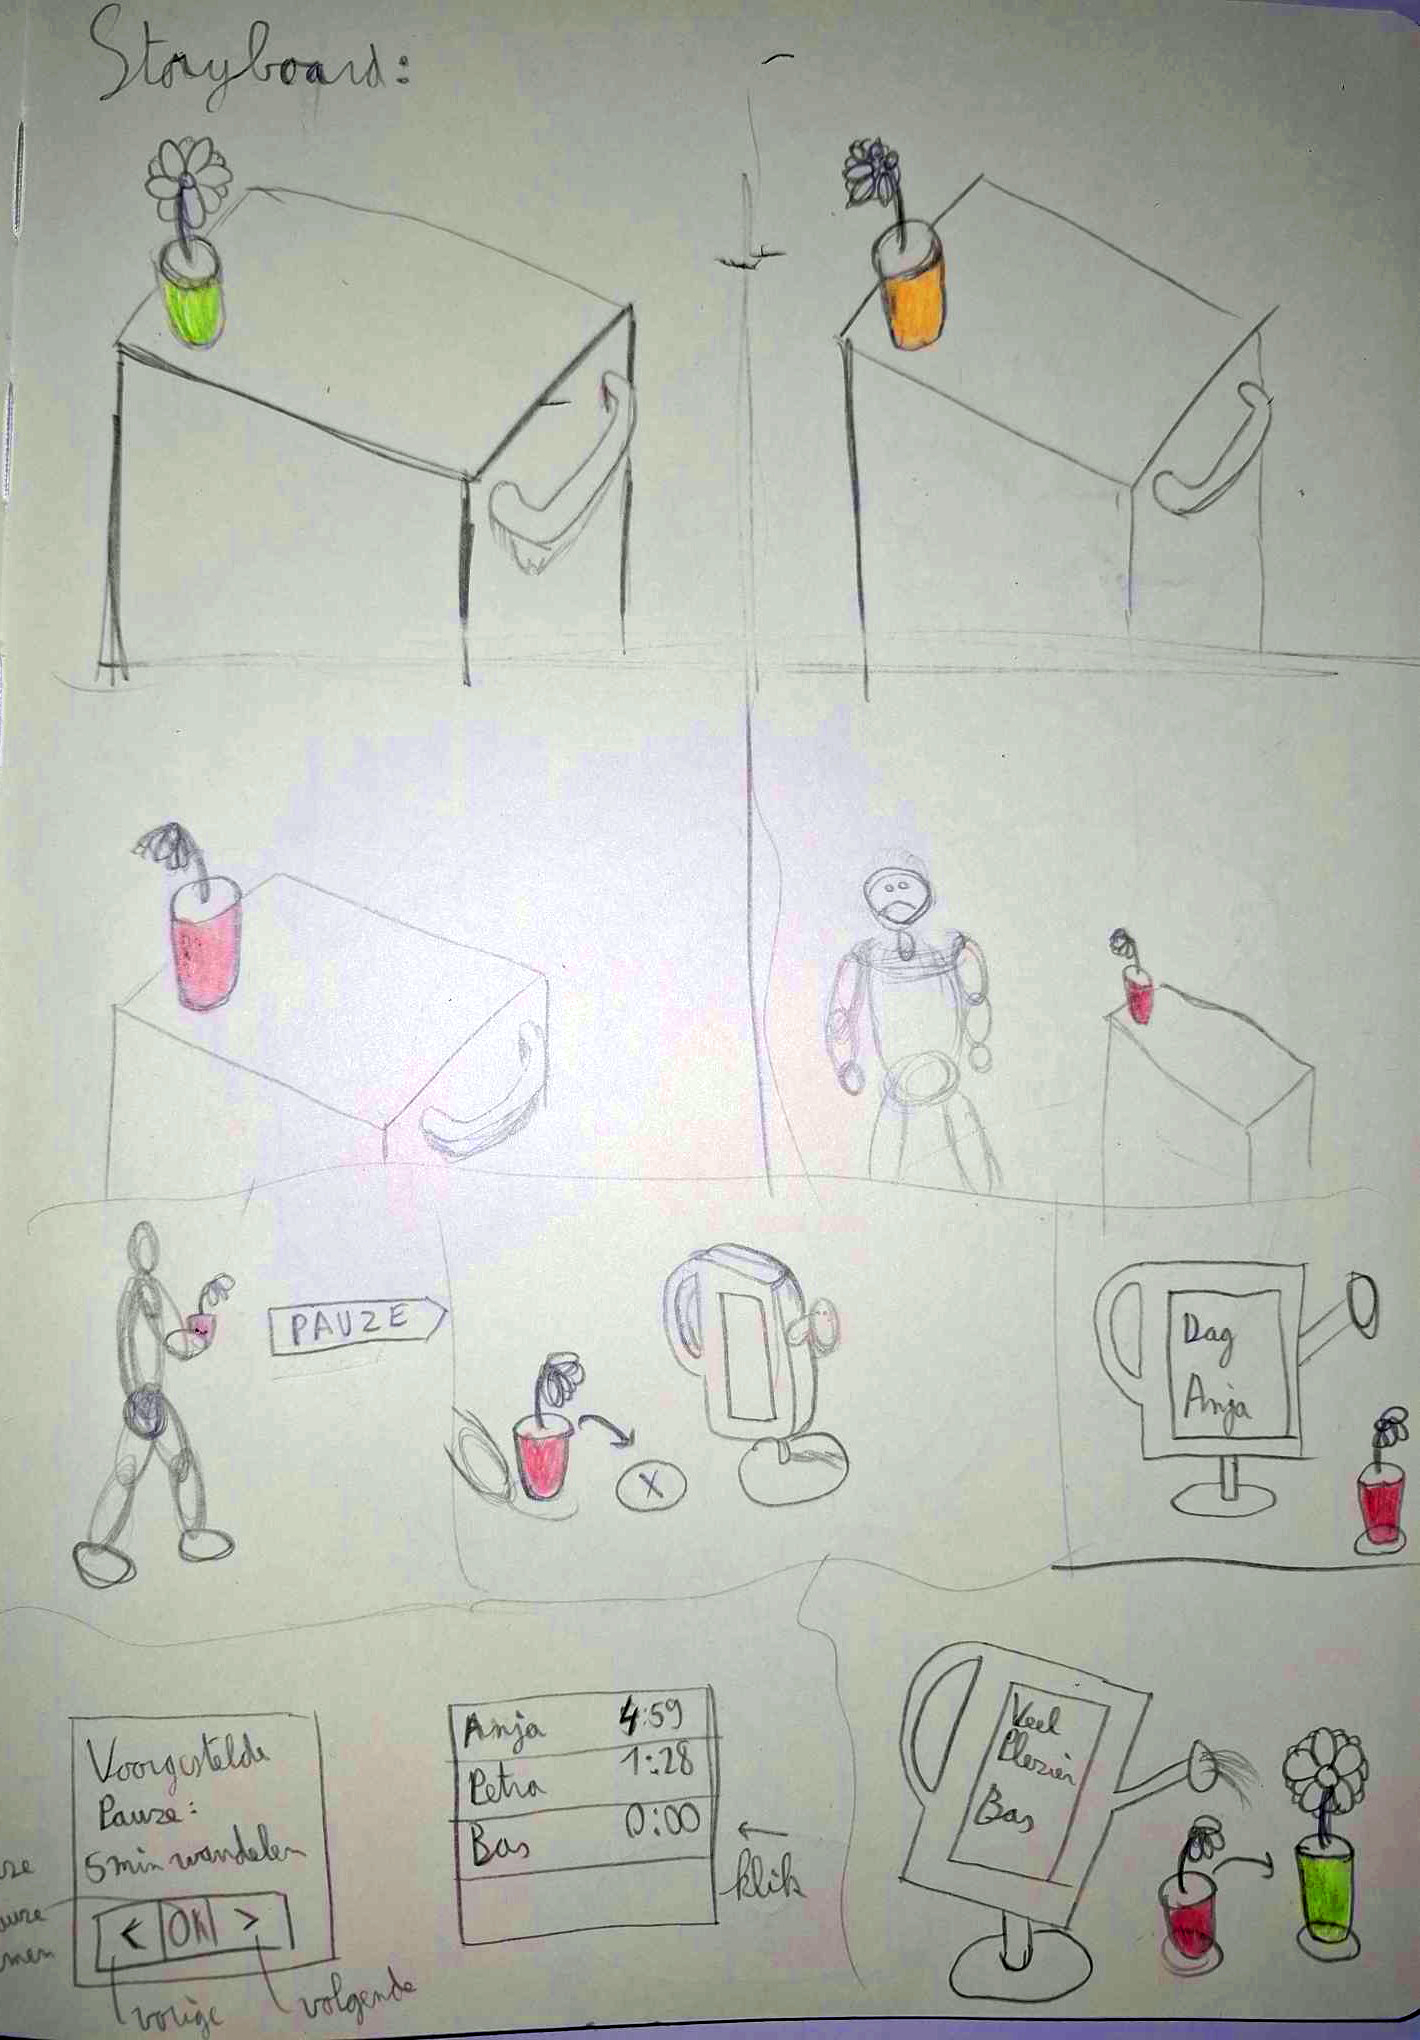 Storyboard:
PAUZE
X
Dag
Anja
Voorgestelde
Pauze:
5 min wandelen
< OK >
vorige
volgende
Anja 4:59
Petra 1:28
Bas 0:00
← klik
Veel
Plezier
Bas